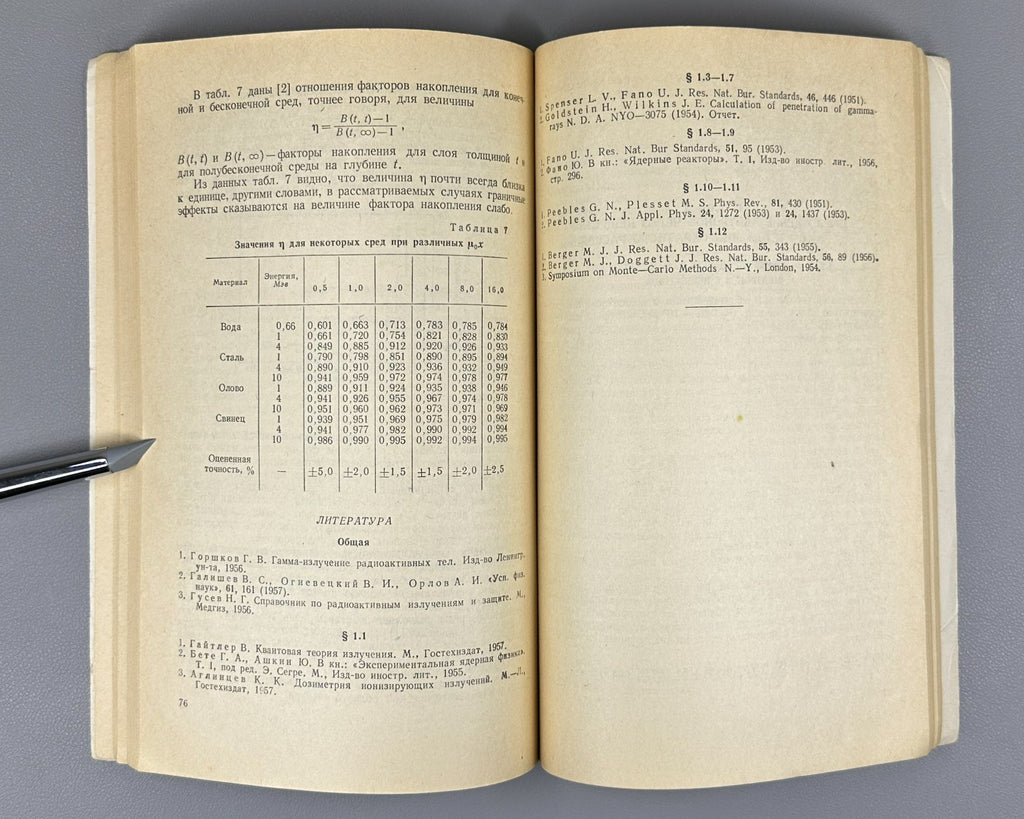 В табл. 7 даны [2] отношения факторов накопления для конеч-
ной и бесконечной сред, точнее говоря, для величины
η = B (t, t)—1 / B (t, ∞)—1 ,
B (t, t) и B (t, ∞) — факторы накопления для слоя толщиной t и
для полубесконечной среды на глубине t.
Из данных табл. 7 видно, что величина η почти всегда близка
к единице, другими словами, в рассматриваемых случаях граничные
эффекты сказываются на величине фактора накопления слабо.
Таблица 7
Значения η для некоторых сред при различных μ₀x
Материал Энергия, Мэв 0,5 1,0 2,0 4,0 8,0 16,0
Вода 0,66 0,601 0,663 0,713 0,783 0,785 0,784
1 0,661 0,720 0,754 0,821 0,828 0,830
4 0,849 0,885 0,912 0,920 0,926 0,933
Сталь 1 0,790 0,798 0,851 0,890 0,895 0,894
4 0,890 0,910 0,923 0,936 0,932 0,949
10 0,941 0,959 0,972 0,974 0,978 0,977
Олово 1 0,889 0,911 0,924 0,935 0,938 0,946
4 0,941 0,926 0,955 0,967 0,974 0,978
10 0,951 0,960 0,962 0,973 0,971 0,969
Свинец 1 0,939 0,951 0,969 0,975 0,979 0,982
4 0,941 0,977 0,982 0,990 0,992 0,994
10 0,986 0,990 0,995 0,992 0,994 0,995
Оцененная
точность, % — ±5,0 ±2,0 ±1,5 ±1,5 ±2,0 ±2,5
ЛИТЕРАТУРА
Общая
1. Горшков Г. В. Гамма-излучение радиоактивных тел. Изд-во Ленингр.
ун-та, 1956.
2. Галишев В. С., Огиевецкий В. И., Орлов А. И. «Усп. физ.
наук», 61, 161 (1957).
3. Гусев Н. Г. Справочник по радиоактивным излучениям и защите. М.,
Медгиз, 1956.
§ 1.1
1. Гайтлер В. Квантовая теория излучения. М., Гостехиздат, 1957.
2. Бете Г. А., Ашкин Ю. В кн.: «Экспериментальная ядерная физика».
Т. I, под ред. Э. Сегре. М., Изд-во иностр. лит., 1955.
3. Аглинцев К. К. Дозиметрия ионизирующих излучений. М.—Л.,
Гостехиздат, 1957.
76
§ 1.3—1.7
1. Spenser L. V., Fano U. J. Res. Nat. Bur. Standards, 46, 446 (1951).
2. Goldstein H., Wilkins J. E. Calculation of penetration of gamma-
rays N. D. A. NYO—3075 (1954). Отчет.
§ 1.8—1.9
1. Fano U. J. Res. Nat. Bur Standards, 51, 95 (1953).
2. Фано Ю. В кн.: «Ядерные реакторы». Т, I, Изд-во иностр. лит., 1956,
стр. 296.
§ 1.10—1.11
1. Peebles G. N., Plesset M. S. Phys. Rev., 81, 430 (1951).
2. Peebles G. N. J. Appl. Phys. 24, 1272 (1953) и 24, 1437 (1953).
§ 1.12
1. Berger M. J. J. Res. Nat. Bur. Standards, 55, 343 (1955).
2. Berger M. J., Doggett J. J. Res. Nat. Bur. Standards, 56, 89 (1956).
3. Symposium on Monte—Carlo Methods N.—Y., London, 1954.